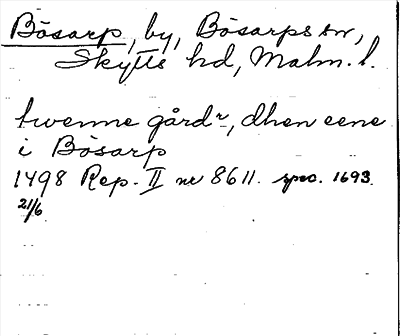 Bösarp, by, Bösarps sn,
Skytts hd, Malm. l.
twenne gårdr, dhen eene
i Bösarp
1498 Rep. II nr 8611. spec. 1693.
21/6